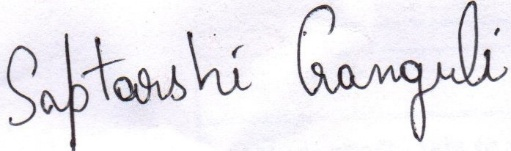 Saptarshi Ganguli